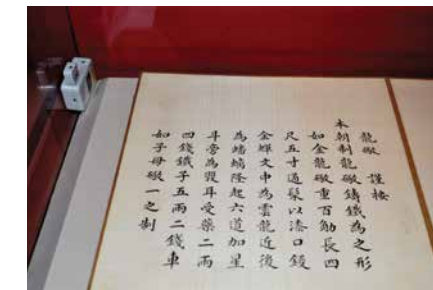 龍礮 謹按
本朝制龍礮鑄鐵為之形
如金龍礮重百觔長四
尺五寸通髹以漆口鋄
金蟬文中為雲龍近後
為蟠螭隆起六道加星
斗旁為雙耳受藥二兩
四錢鐵子五兩二錢車
如子母礮一之制